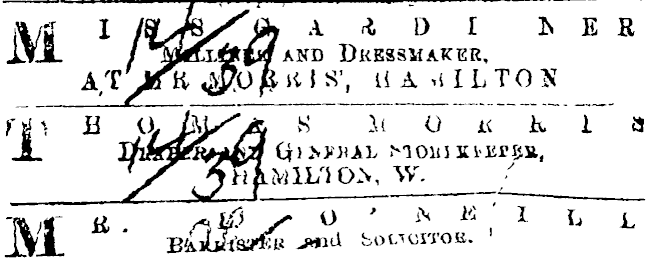 MISS GARDINER
MILLINER AND DRESSMAKER,
AT MR MORRIS', HAMILTON
THOMAS MORRIS
DRAPER AND GENERAL STOREKEEPER,
HAMILTON, W.
MR. O'NEILL
BARRISTER and SOLICITOR.